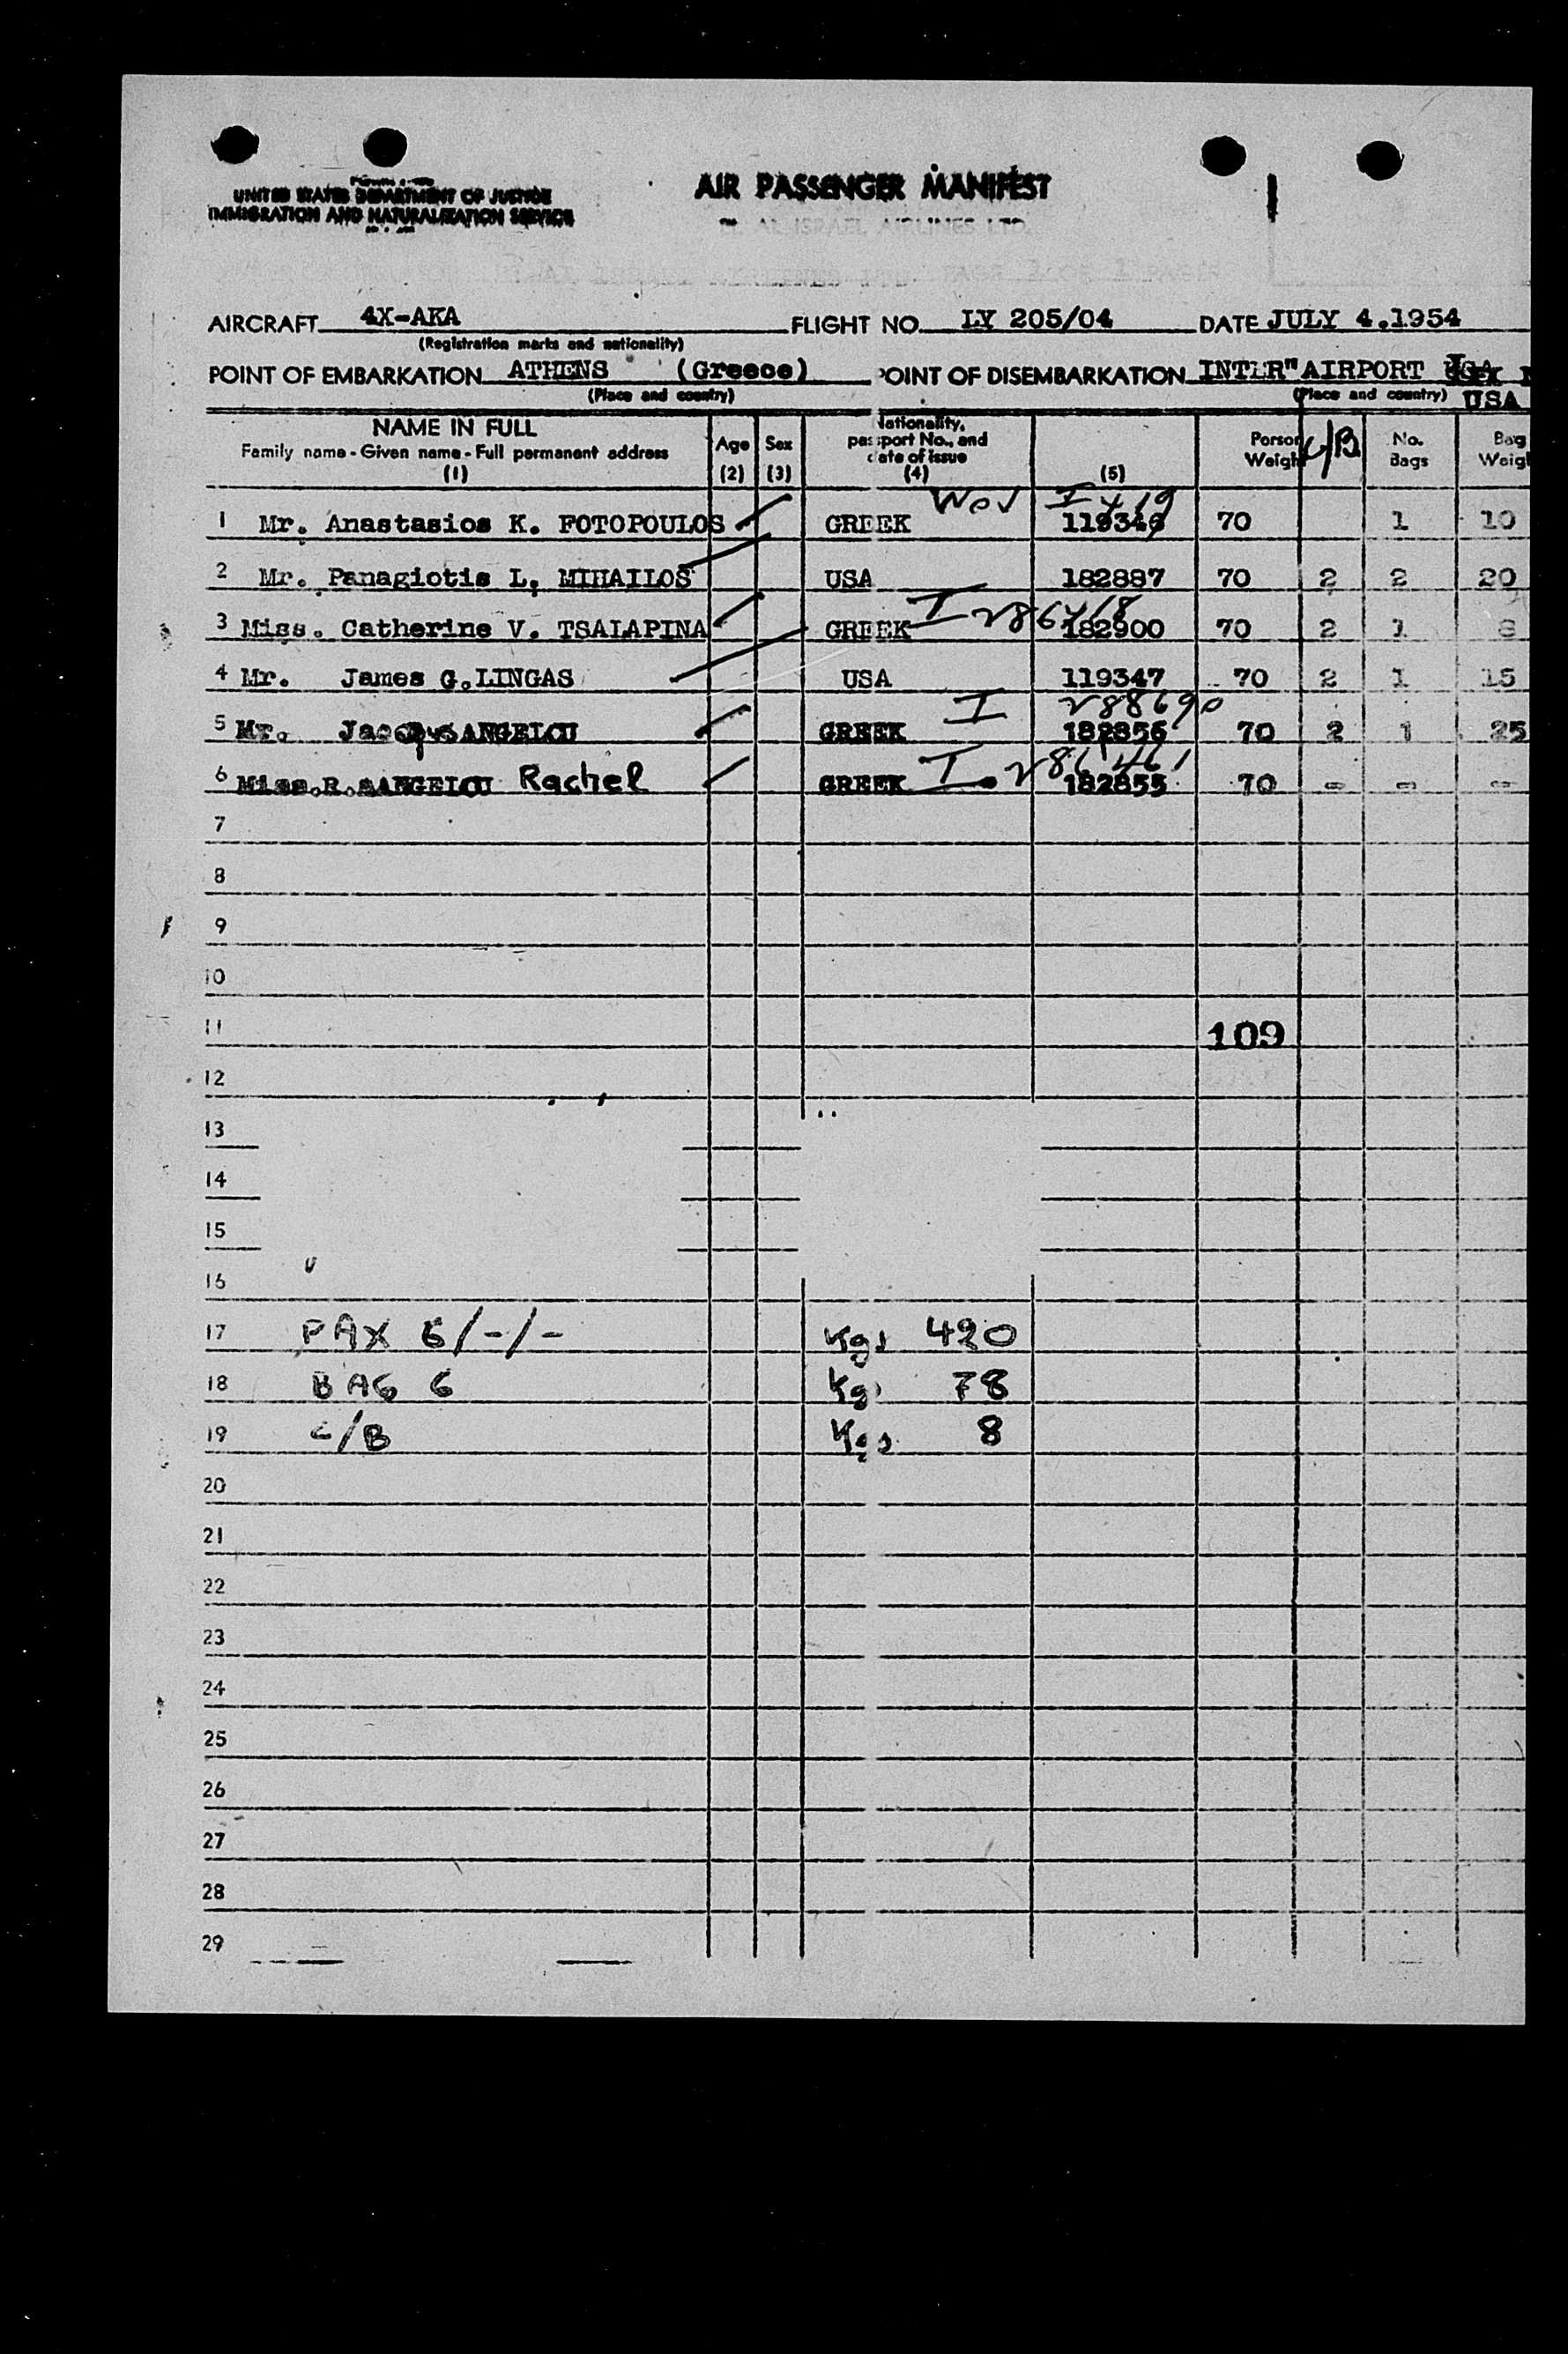 UNITED STATES DEPARTMENT OF JUSTICE
IMMIGRATION AND NATURALIZATION SERVICE
AIR PASSENGER MANIFEST
EL AL ISRAEL AIRLINES LTD.
AIRCRAFT 4X-AKA FLIGHT NO. LY 205/04 DATE JULY 4.1954
(Registration marks and nationality)
POINT OF EMBARKATION ATHENS (Greece) POINT OF DISEMBARKATION INTER" AIRPORT
(Place and country) (Place and country) USA
NAME IN FULL Age Sex Nationality, Person C/B No. Bag
Family name - Given name - Full permanent address passport No., and Weight Bags Weigh
(1) (2) (3) date of issue (4) (5)
1 Mr. Anastasios K. FOTOPOULOS GREEK 119346 70 1 10
2 Mr. Panagiotis L. MIHAILOS USA 182887 70 2 2 20
3 Miss. Catherine V. TSALAPINA GREEK I 286418 182900 70 2 1 8
4 Mr. James G.LINGAS USA 119347 70 2 1 15
5 Mr. SANGELOU GREEK I 288690 182856 70 2 1 25
6 Miss.R.SANGELOU Rachel GREEK I 286461 182855 70 - - -
7
8
9
10
11 109
12
13
14
15
16
17 PAX 6/-/- Kgs 420
18 BAG 6 Kgs 78
19 C/B Kgs 8
20
21
22
23
24
25
26
27
28
29